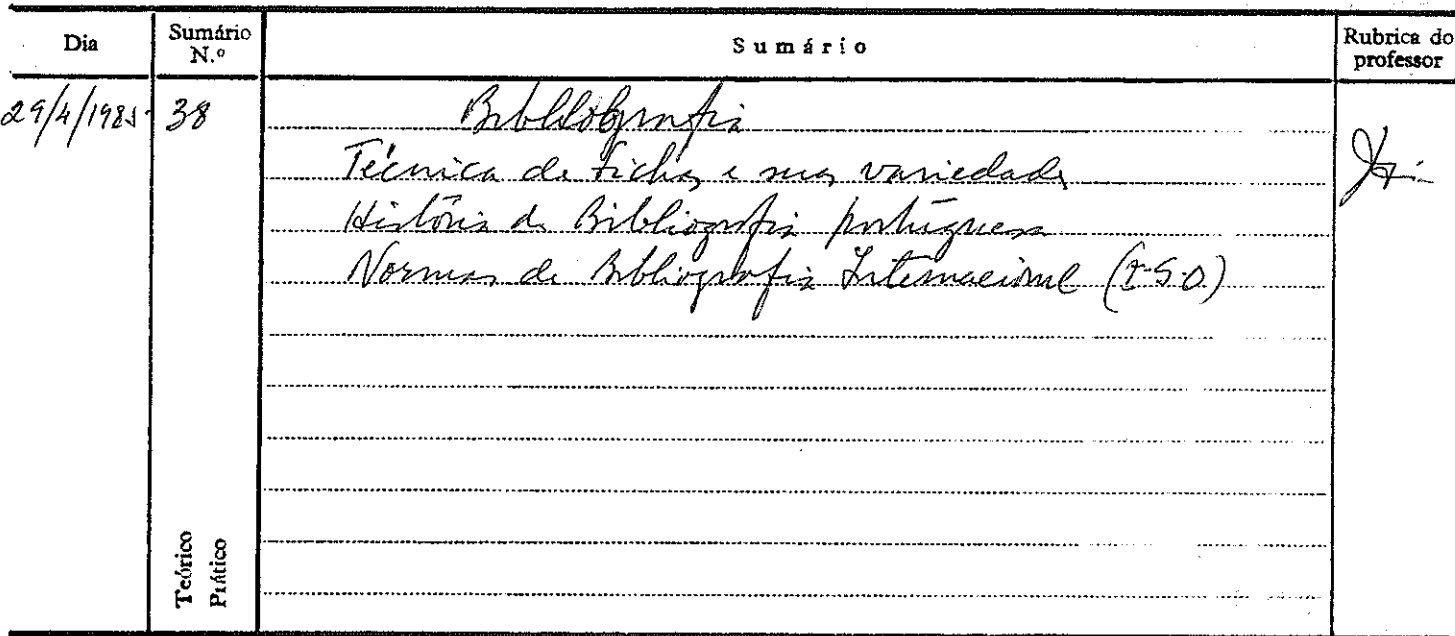 Dia
Sumário N.º
Sumário
Rubrica do professor
29/4/1985
38
Bibliografia
Técnica de fichas e suas variedades
História da Bibliografia portuguesa
Normas de Bibliografia Internacional (I.S.O.)
Teórico
Prático